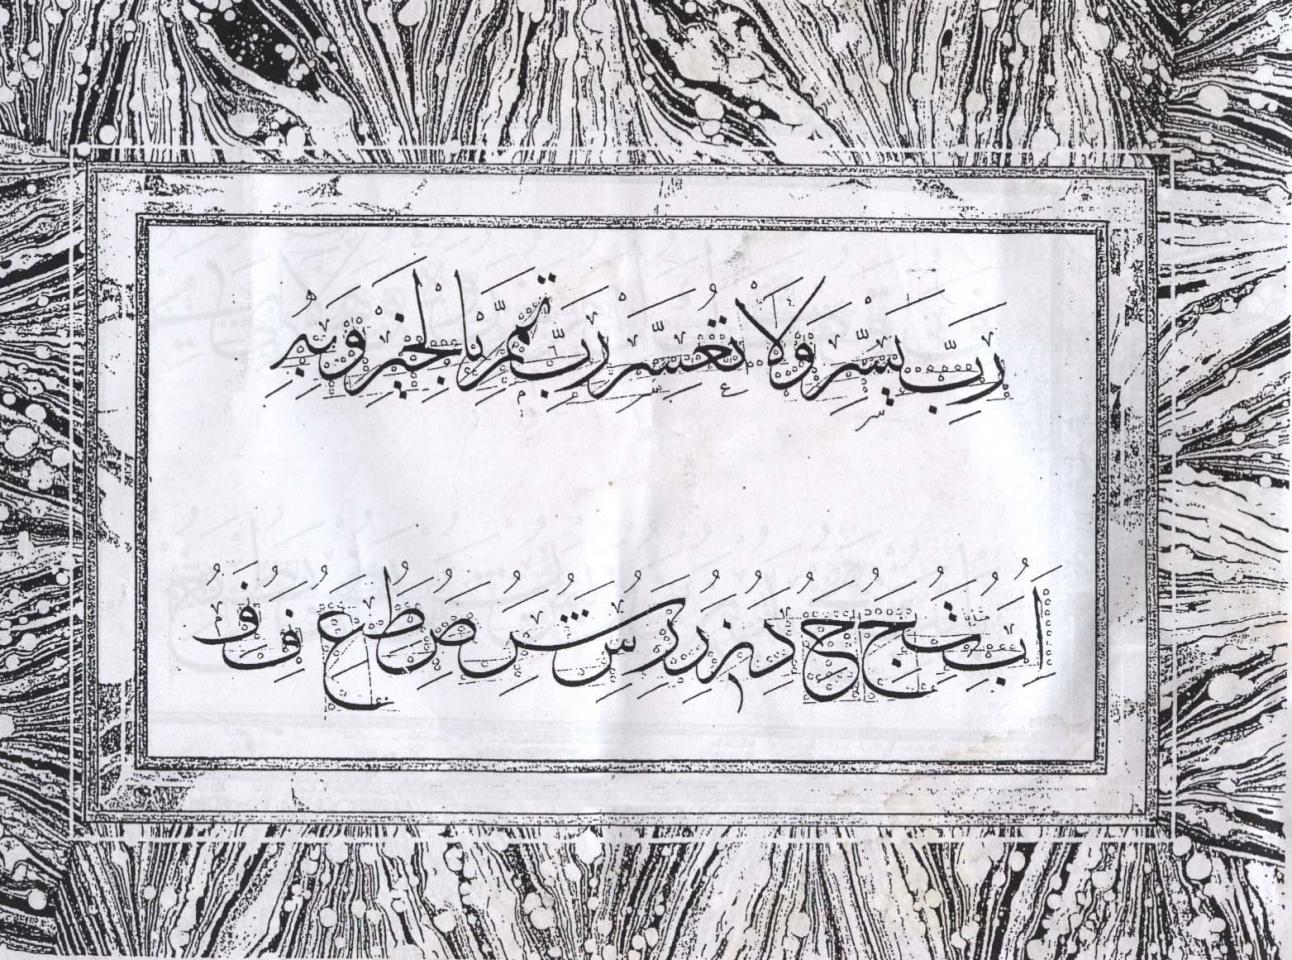 رَبِّ يَسِّرْ وَلَا تُعَسِّرْ رَبِّ تَمِّمْ بِالْخَيْرِ وَبِهِ
ا ب ث ج ح د ر ز س ش ص ط ع ف ف